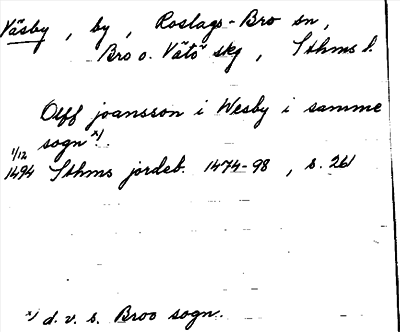 Väsby, by, Roslags-Bro sn,
Bro o. Vätö skg, Sthms l.
Olff joansson i Wesby i samme
sogn x).
1/12
1494 Sthms jordeb. 1474-98, s. 261
x) d.v.s. Broo sogn.